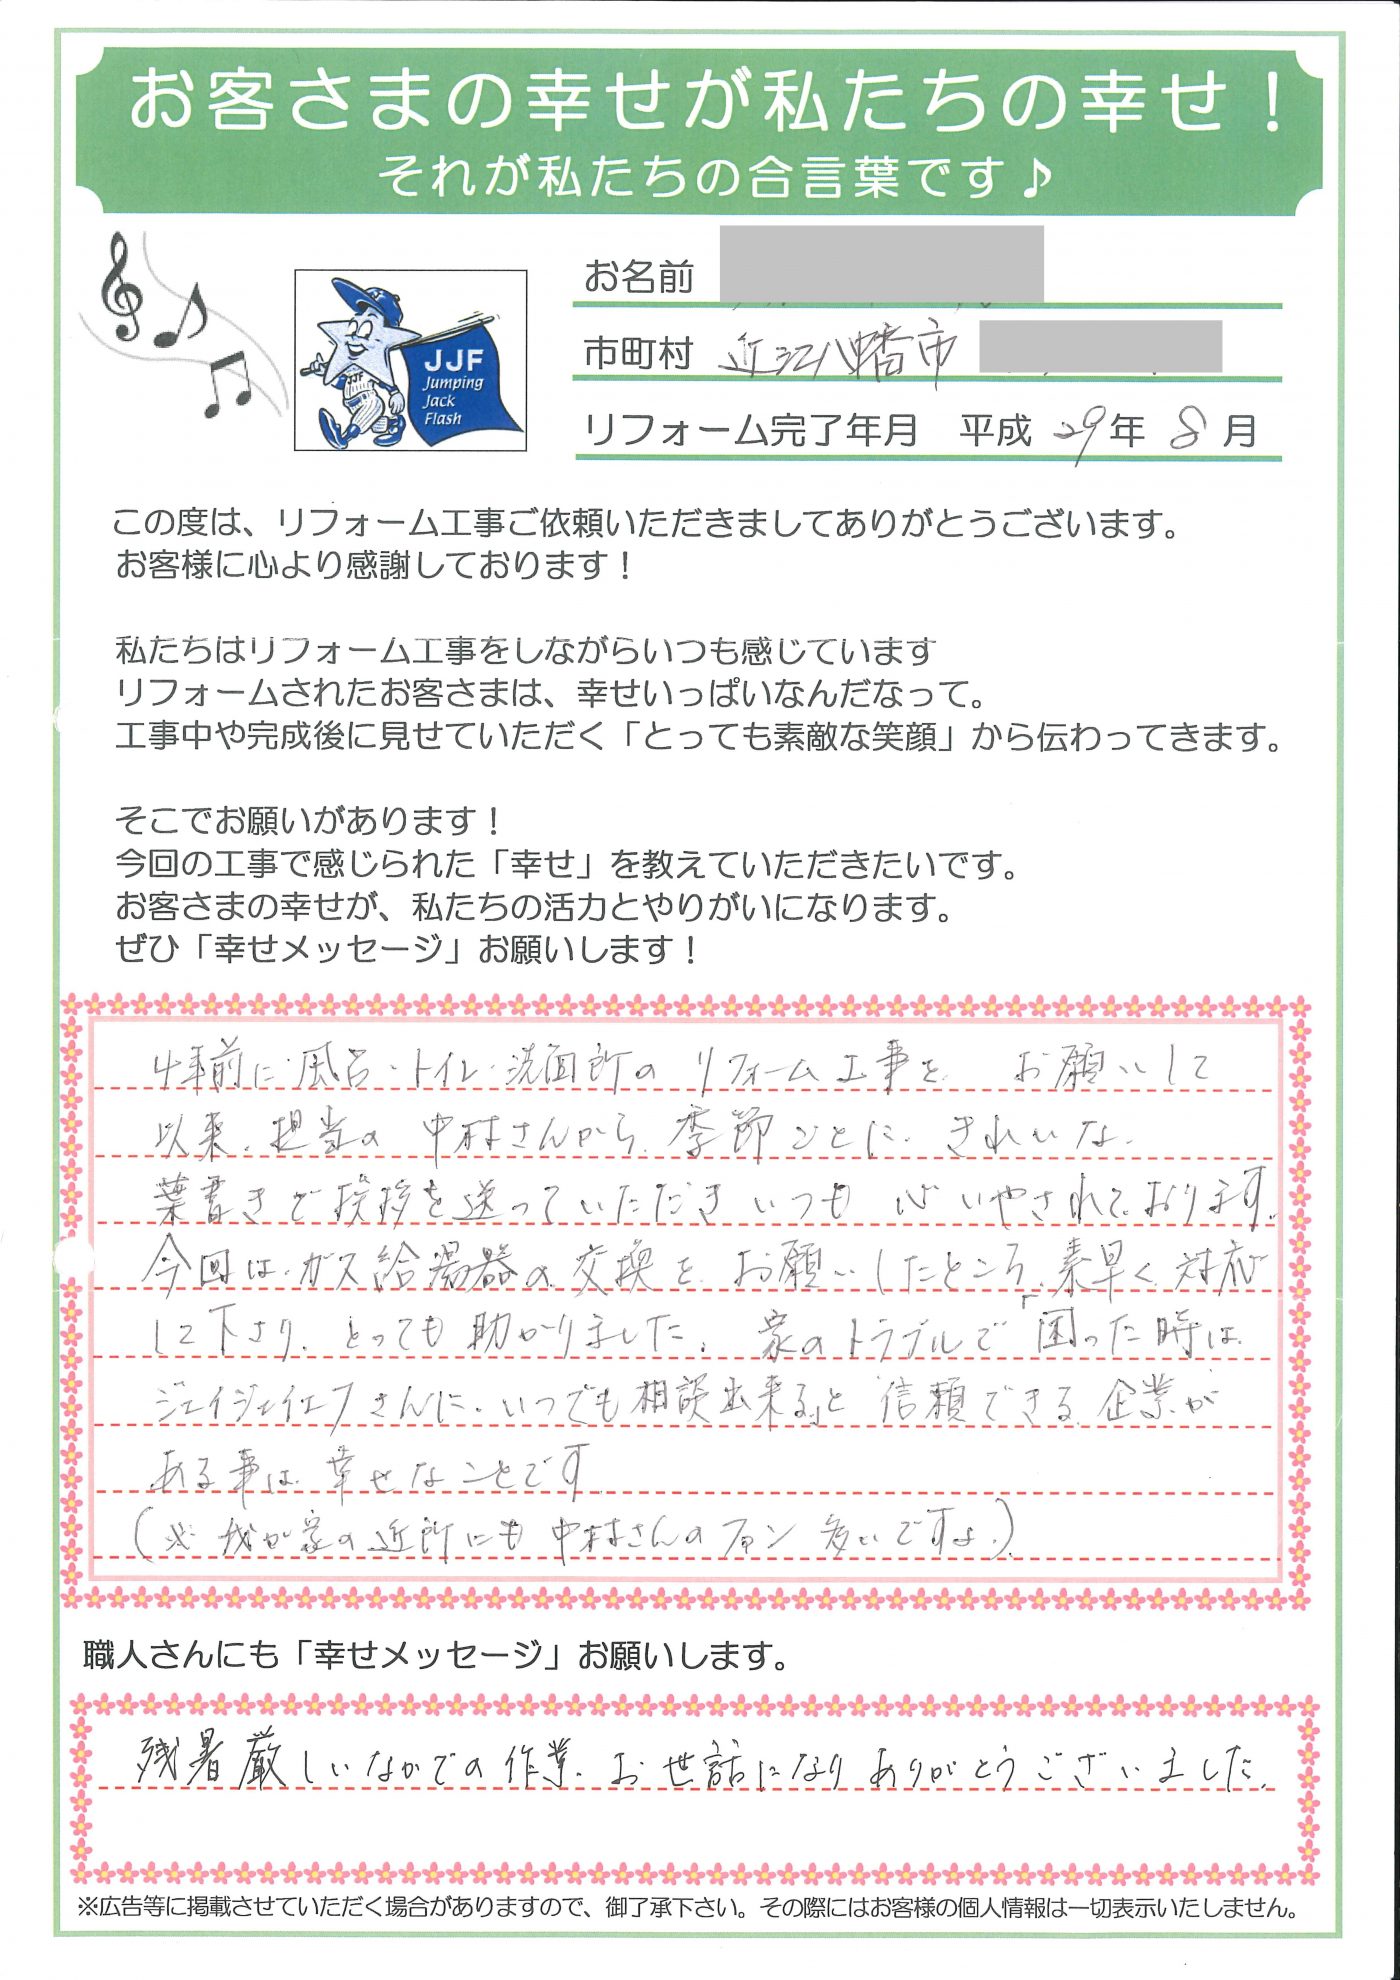 お客さまの幸せが私たちの幸せ！
それが私たちの合言葉です♪
お名前
JJF
Jumping
Jack
Flash
JJF
市町村 近江八幡市
リフォーム完了年月 平成 29年 8月
この度は、リフォーム工事ご依頼いただきましてありがとうございます。
お客様に心より感謝しております！
私たちはリフォーム工事をしながらいつも感じています
リフォームされたお客さまは、幸せいっぱいなんだなって。
工事中や完成後に見せていただく「とっても素敵な笑顔」から伝わってきます。
そこでお願いがあります！
今回の工事で感じられた「幸せ」を教えていただきたいです。
お客さまの幸せが、私たちの活力とやりがいになります。
ぜひ「幸せメッセージ」お願いします！
4年前に風呂・トイレ・洗面所のリフォーム工事を、お願いして
以来、担当の中村さんから、季節ごとに、きれいな、
葉書きで挨拶を送っていただき いつも 心いやされております。
今回は、ガス給湯器の交換を、お願いしたところ、素早く対応
して下さり、とっても助かりました。家のトラブルで「困った時は、
ジェイジェイエフさんに、いつでも相談出来る」と 信頼できる企業が
ある事は、幸せなことです
(※ 我が家の近所にも 中村さんのファン多いですよ。)
職人さんにも「幸せメッセージ」お願いします。
残暑厳しいなかでの作業、お世話になりありがとうございました。
※広告等に掲載させていただく場合がありますので、御了承下さい。その際にはお客様の個人情報は一切表示いたしません。